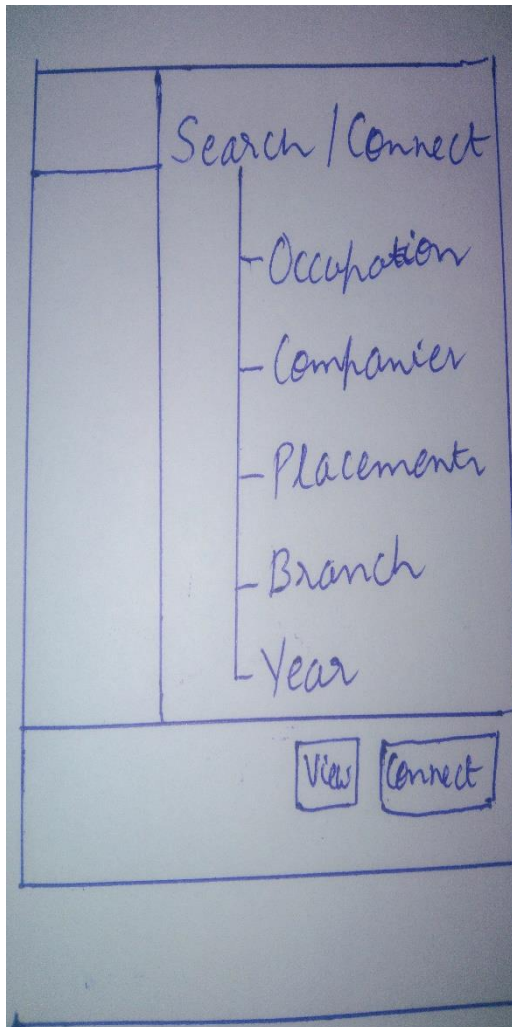 Search / Connect
Occupation
Companies
Placements
Branch
Year
View Connect